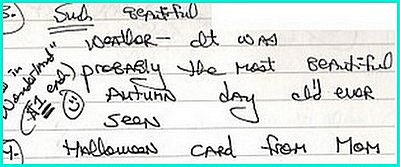 3. Such BEAUTIFUL
WEATHER - It WAS
probably the most BEAUTIFUL
AUTUMN day I'd EVER
SEEN
in Wonderland"
($1 each)
4. Halloween CARD FROM MOM